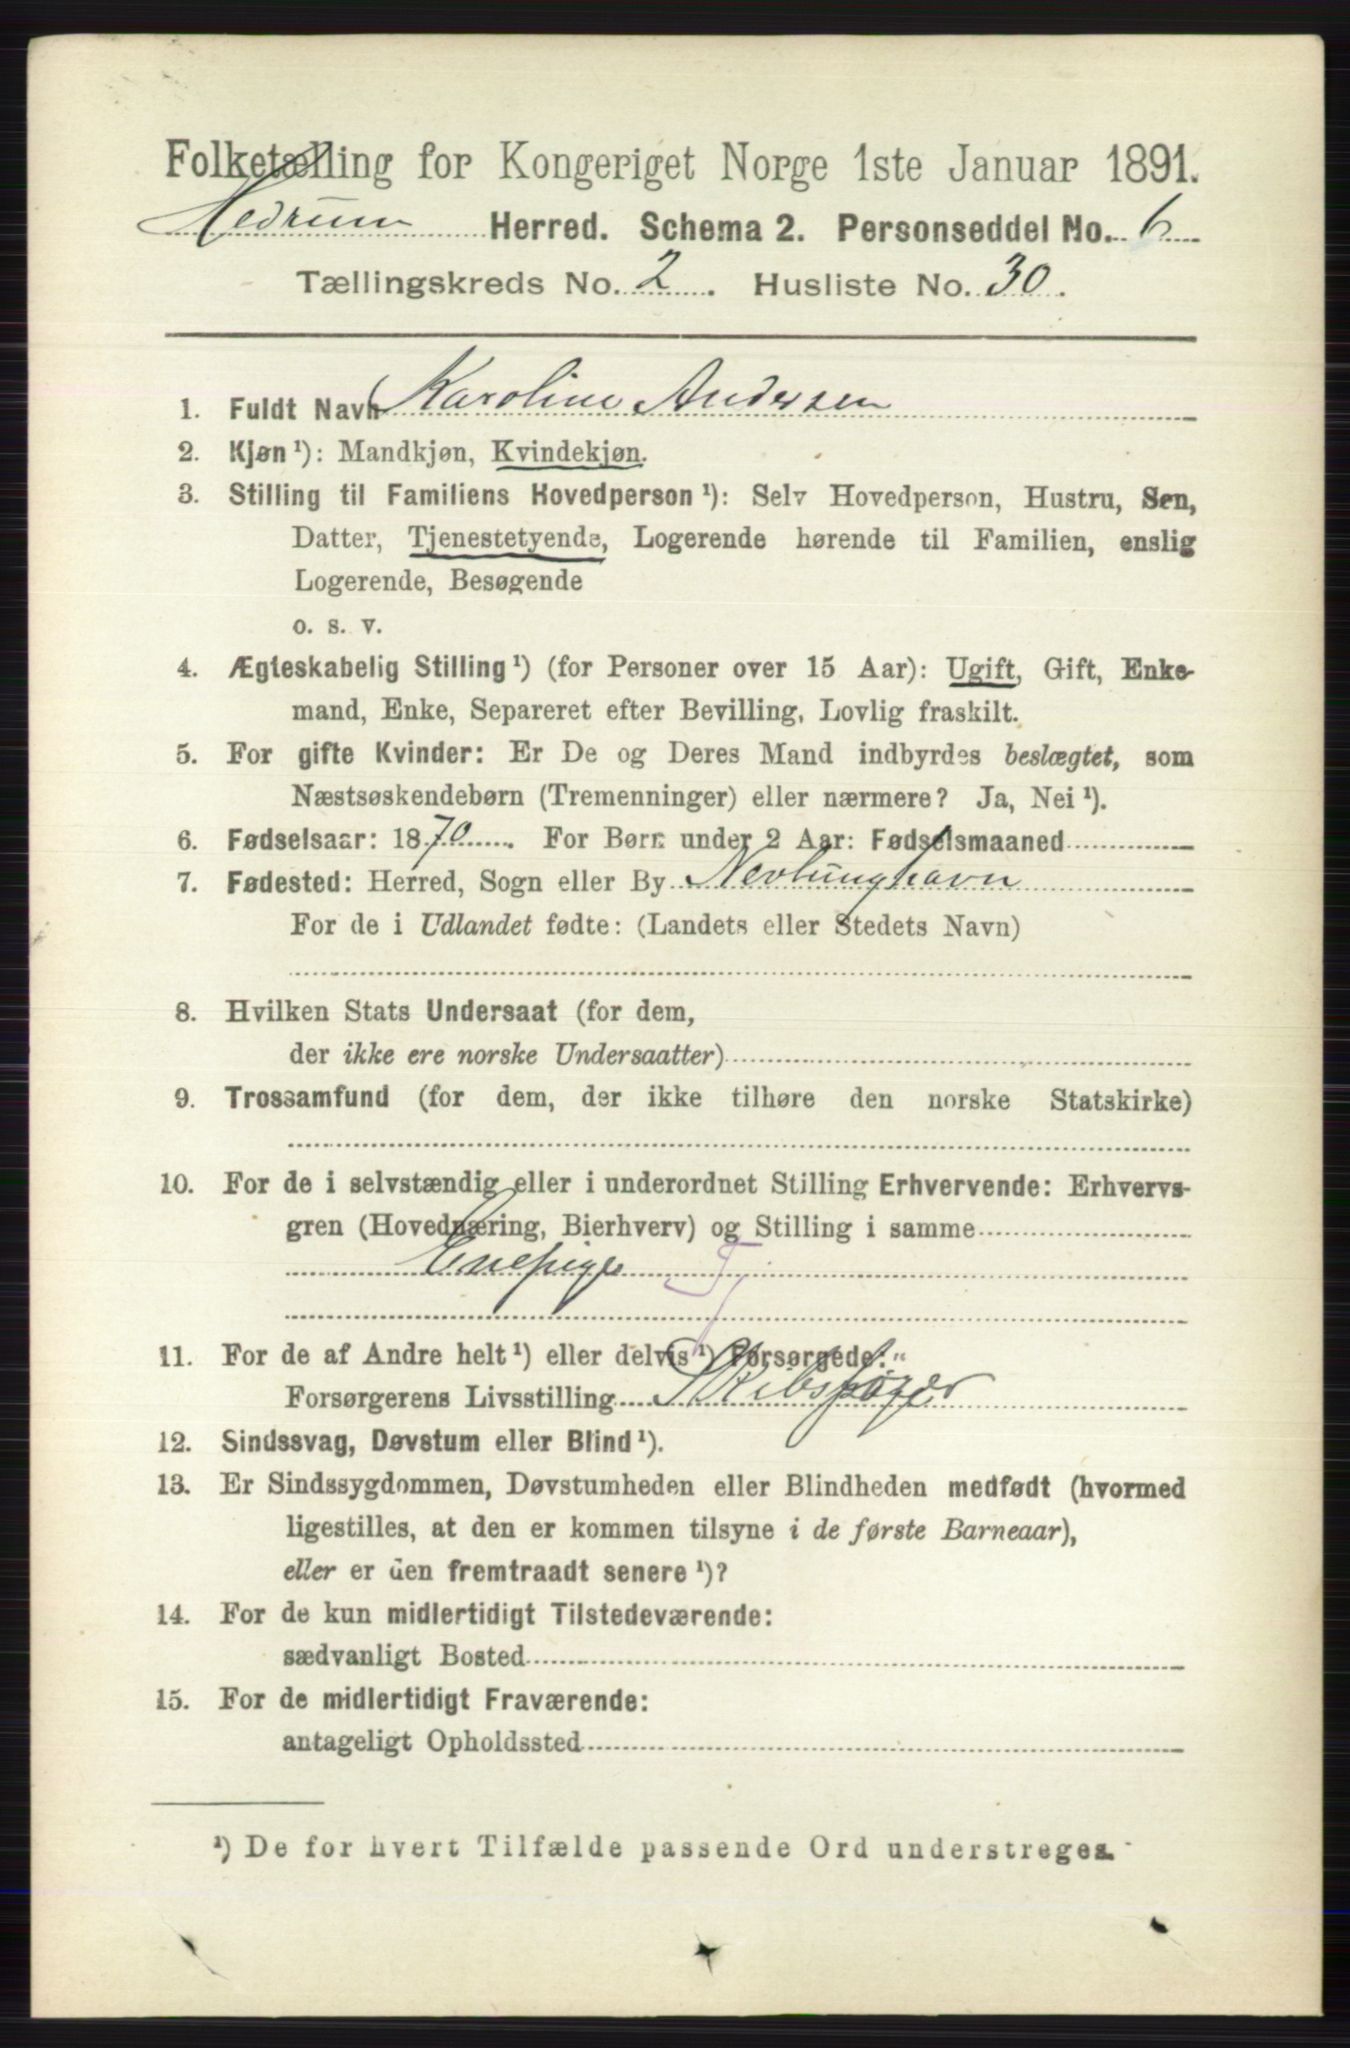 Folketælling for Kongeriget Norge 1ste Januar 1891.
Hedrum Herred. Schema 2. Personseddel No. 6
Tællingskreds No. 2. Husliste No. 30.
1. Fuldt Navn Karoline Andersen
2. Kjøn ¹): Mandkjøn, Kvindekjøn.
3. Stilling til Familiens Hovedperson ¹): Selv Hovedperson, Hustru, Søn,
Datter, Tjenestetyende, Logerende hørende til Familien, enslig
Logerende, Besøgende
o. s. v.
4. Ægteskabelig Stilling ¹) (for Personer over 15 Aar): Ugift, Gift, Enke-
mand, Enke, Separeret efter Bevilling, Lovlig fraskilt.
5. For gifte Kvinder: Er De og Deres Mand indbyrdes beslægtet, som
Næstsøskendebørn (Tremenninger) eller nærmere? Ja, Nei ¹).
6. Fødselsaar: 1870. For Børn under 2 Aar: Fødselsmaaned
7. Fødested: Herred, Sogn eller By Nevlunghavn
For de i Udlandet fødte: (Landets eller Stedets Navn)
8. Hvilken Stats Undersaat (for dem,
der ikke ere norske Undersaatter)
9. Trossamfund (for dem, der ikke tilhøre den norske Statskirke)
10. For de i selvstændig eller i underordnet Stilling Erhvervende: Erhvervs-
gren (Hovednæring, Bierhverv) og Stilling i samme
Enepige Tj
11. For de af Andre helt ¹) eller delvis ¹) Forsørgede:
Forsørgerens Livsstilling
12. Sindssvag, Døvstum eller Blind ¹).
13. Er Sindssygdommen, Døvstumheden eller Blindheden medfødt (hvormed
ligestilles, at den er kommen tilsyne i de første Barneaar),
eller er den fremtraadt senere ¹)?
14. For de kun midlertidigt Tilstedeværende:
sædvanligt Bosted
15. For de midlertidigt Fraværende:
antageligt Opholdssted
¹) De for hvert Tilfælde passende Ord understreges.